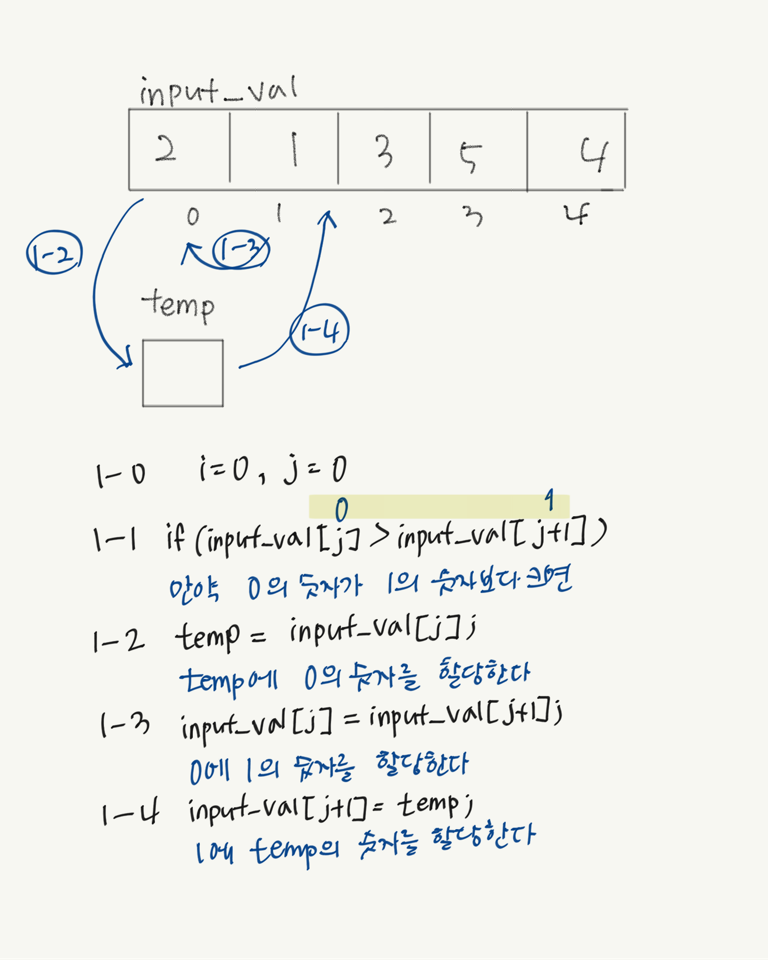 input_val
2 1 3 5 4
0 1 2 3 4
1-2 1-3
temp
1-4
1-0 i=0, j=0
0 1
1-1 if (input_val[j] > input_val[j+1])
만약 0의 숫자가 1의 숫자보다 크면
1-2 temp = input_val[j];
temp에 0의 숫자를 할당한다
1-3 input_val[j] = input_val[j+1];
0에 1의 숫자를 할당한다
1-4 input_val[j+1] = temp;
1에 temp의 숫자를 할당한다